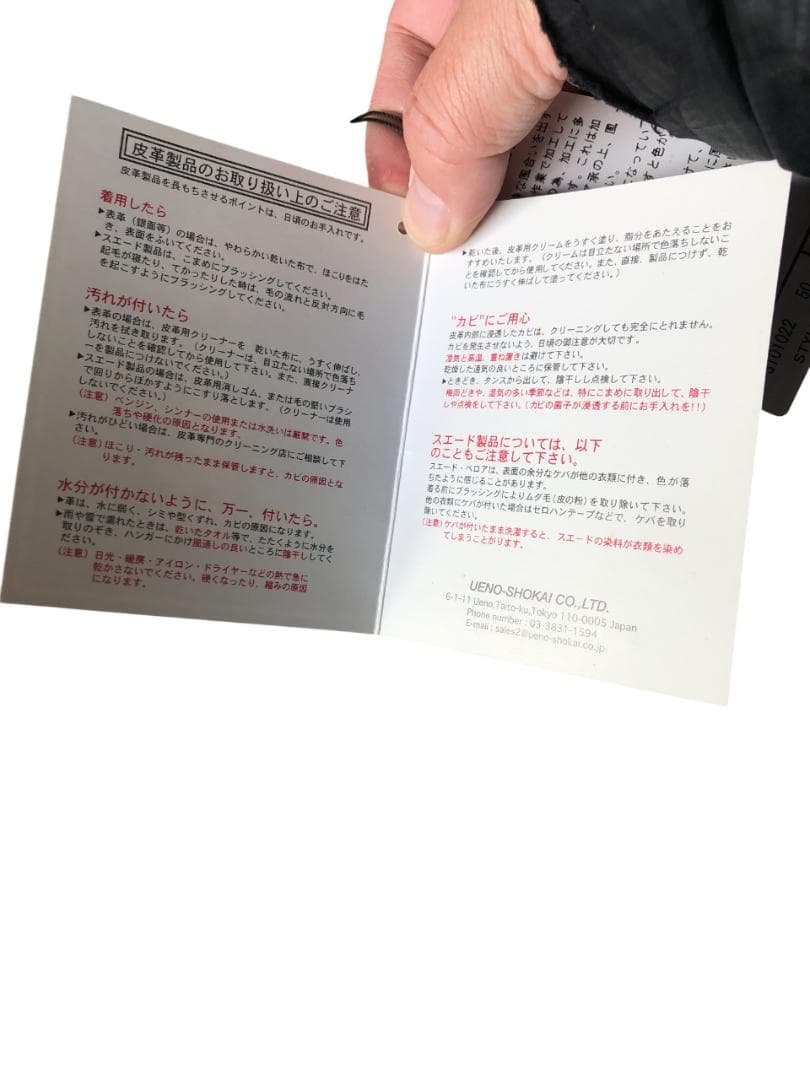 皮革製品のお取り扱い上のご注意
皮革製品を長もちさせるポイントは、日頃のお手入れです。
着用したら
▶表革（銀面等）の場合は、やわらかい乾いた布で、ほこりをはた
き、表面をふいてください。
▶スエード製品は、こまめにブラッシングしてください。
起毛が寝たり、てかったりした時は、毛の流れと反対方向に毛
を起こすようにブラッシングしてください。
汚れが付いたら
▶表革の場合は、皮革用クリーナーを 乾いた布に、うすく伸ばし、
汚れを拭き取ります。（クリーナーは、目立たない場所で色落ち
しないことを確認してから使用して下さい。また、直接クリーナ
ーを製品につけないでください。）
▶スエード製品の場合は、皮革用消しゴム、または毛の堅いブラシ
で回りからぼかすようにこすり落とします。（クリーナーは使用
しないでください。）
（注意）ベンジン、シンナーの使用または水洗いは厳禁です。色
落ちや硬化の原因となります。
▶汚れがひどい場合は、皮革専門のクリーニング店にご相談して下
さい。
（注意）ほこり・汚れが残ったまま保管しますと、カビの原因とな
ります。
水分が付かないように、万一、付いたら。
▶革は、水に弱く、シミや型くずれ、カビの原因になります。
▶雨や雪で濡れたときは、乾いたタオル等で、たたくように水分を
取りのぞき、ハンガーにかけ風通しの良いところに陰干ししてく
ださい。
（注意）日光・暖房・アイロン・ドライヤーなどの熱で急に
乾かさないでください。硬くなったり、縮みの原因
になります。
▶乾いた後、皮革用クリームをうすく塗り、脂分をあたえることをお
すすめいたします。（クリームは目立たない場所で色落ちしないこ
とを確認してから使用してください。また、直接、製品につけず、乾
いた布にうすく伸ばして塗ってください。）
"カビ"にご用心
皮革内部に浸透したカビは、クリーニングしても完全にとれません。
カビを発生させないよう、日頃の御注意が大切です。
湿気と高温、重ね置きは避けて下さい。
乾燥した通気の良いところに保管して下さい。
▶ときどき、タンスから出して、陰干しし点検して下さい。
梅雨どきや、湿気の多い季節などは、特にこまめに取り出して、陰干
しや点検をして下さい。（カビの菌子が浸透する前にお手入れを!!）
スエード製品については、以下
のこともご注意して下さい。
スエード・ベロアは、表面の余分なケバが他の衣類に付き、色が落
ちたように感じることがあります。
着る前にブラッシングによりムダ毛（皮の粉）を取り除いて下さい。
他の衣類にケバが付いた場合はセロハンテープなどで、ケバを取り
除いてください。
（注意）ケバが付いたまま洗濯すると、スエードの染料が衣類を染め
てしまうことがります。
UENO-SHOKAI CO.,LTD.
6-1-11 Ueno,Taito-ku,Tokyo 110-0005 Japan
Phone number : 03-3831-1594
E-mail : sales2@ueno-shokai.co.jp